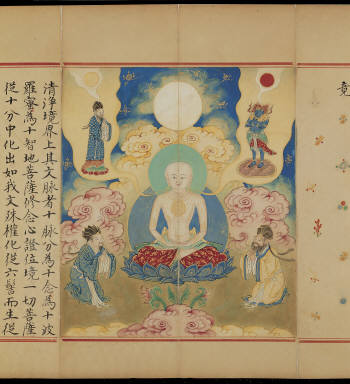 竟
清淨境界上其文脈者十脈分為十念為十波
羅蜜為十智地菩薩修念心證位境一切菩薩
從十分中化出如我文殊權化從六髻而生從